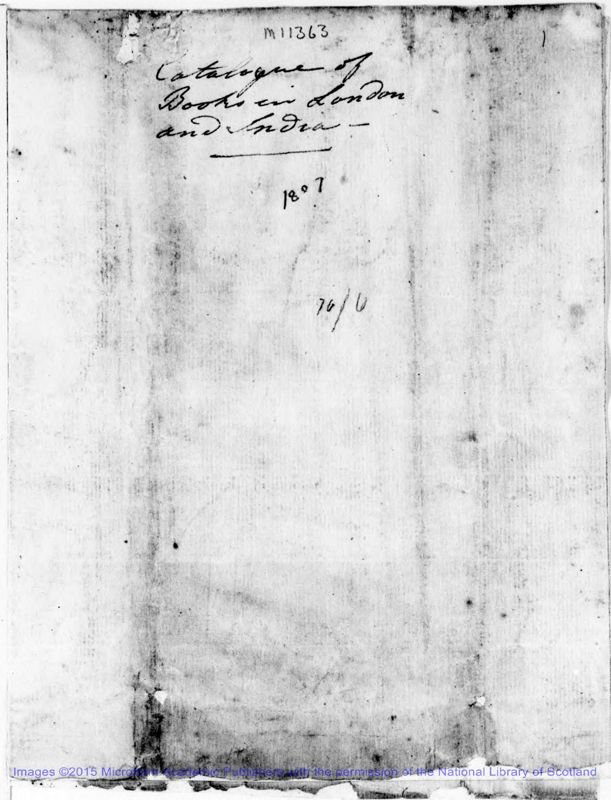 M11363
1
Catalogue of
Books in London
and India —
1807
76/6
Images ©2015 Microform Academic Publishers with the permission of the National Library of Scotland